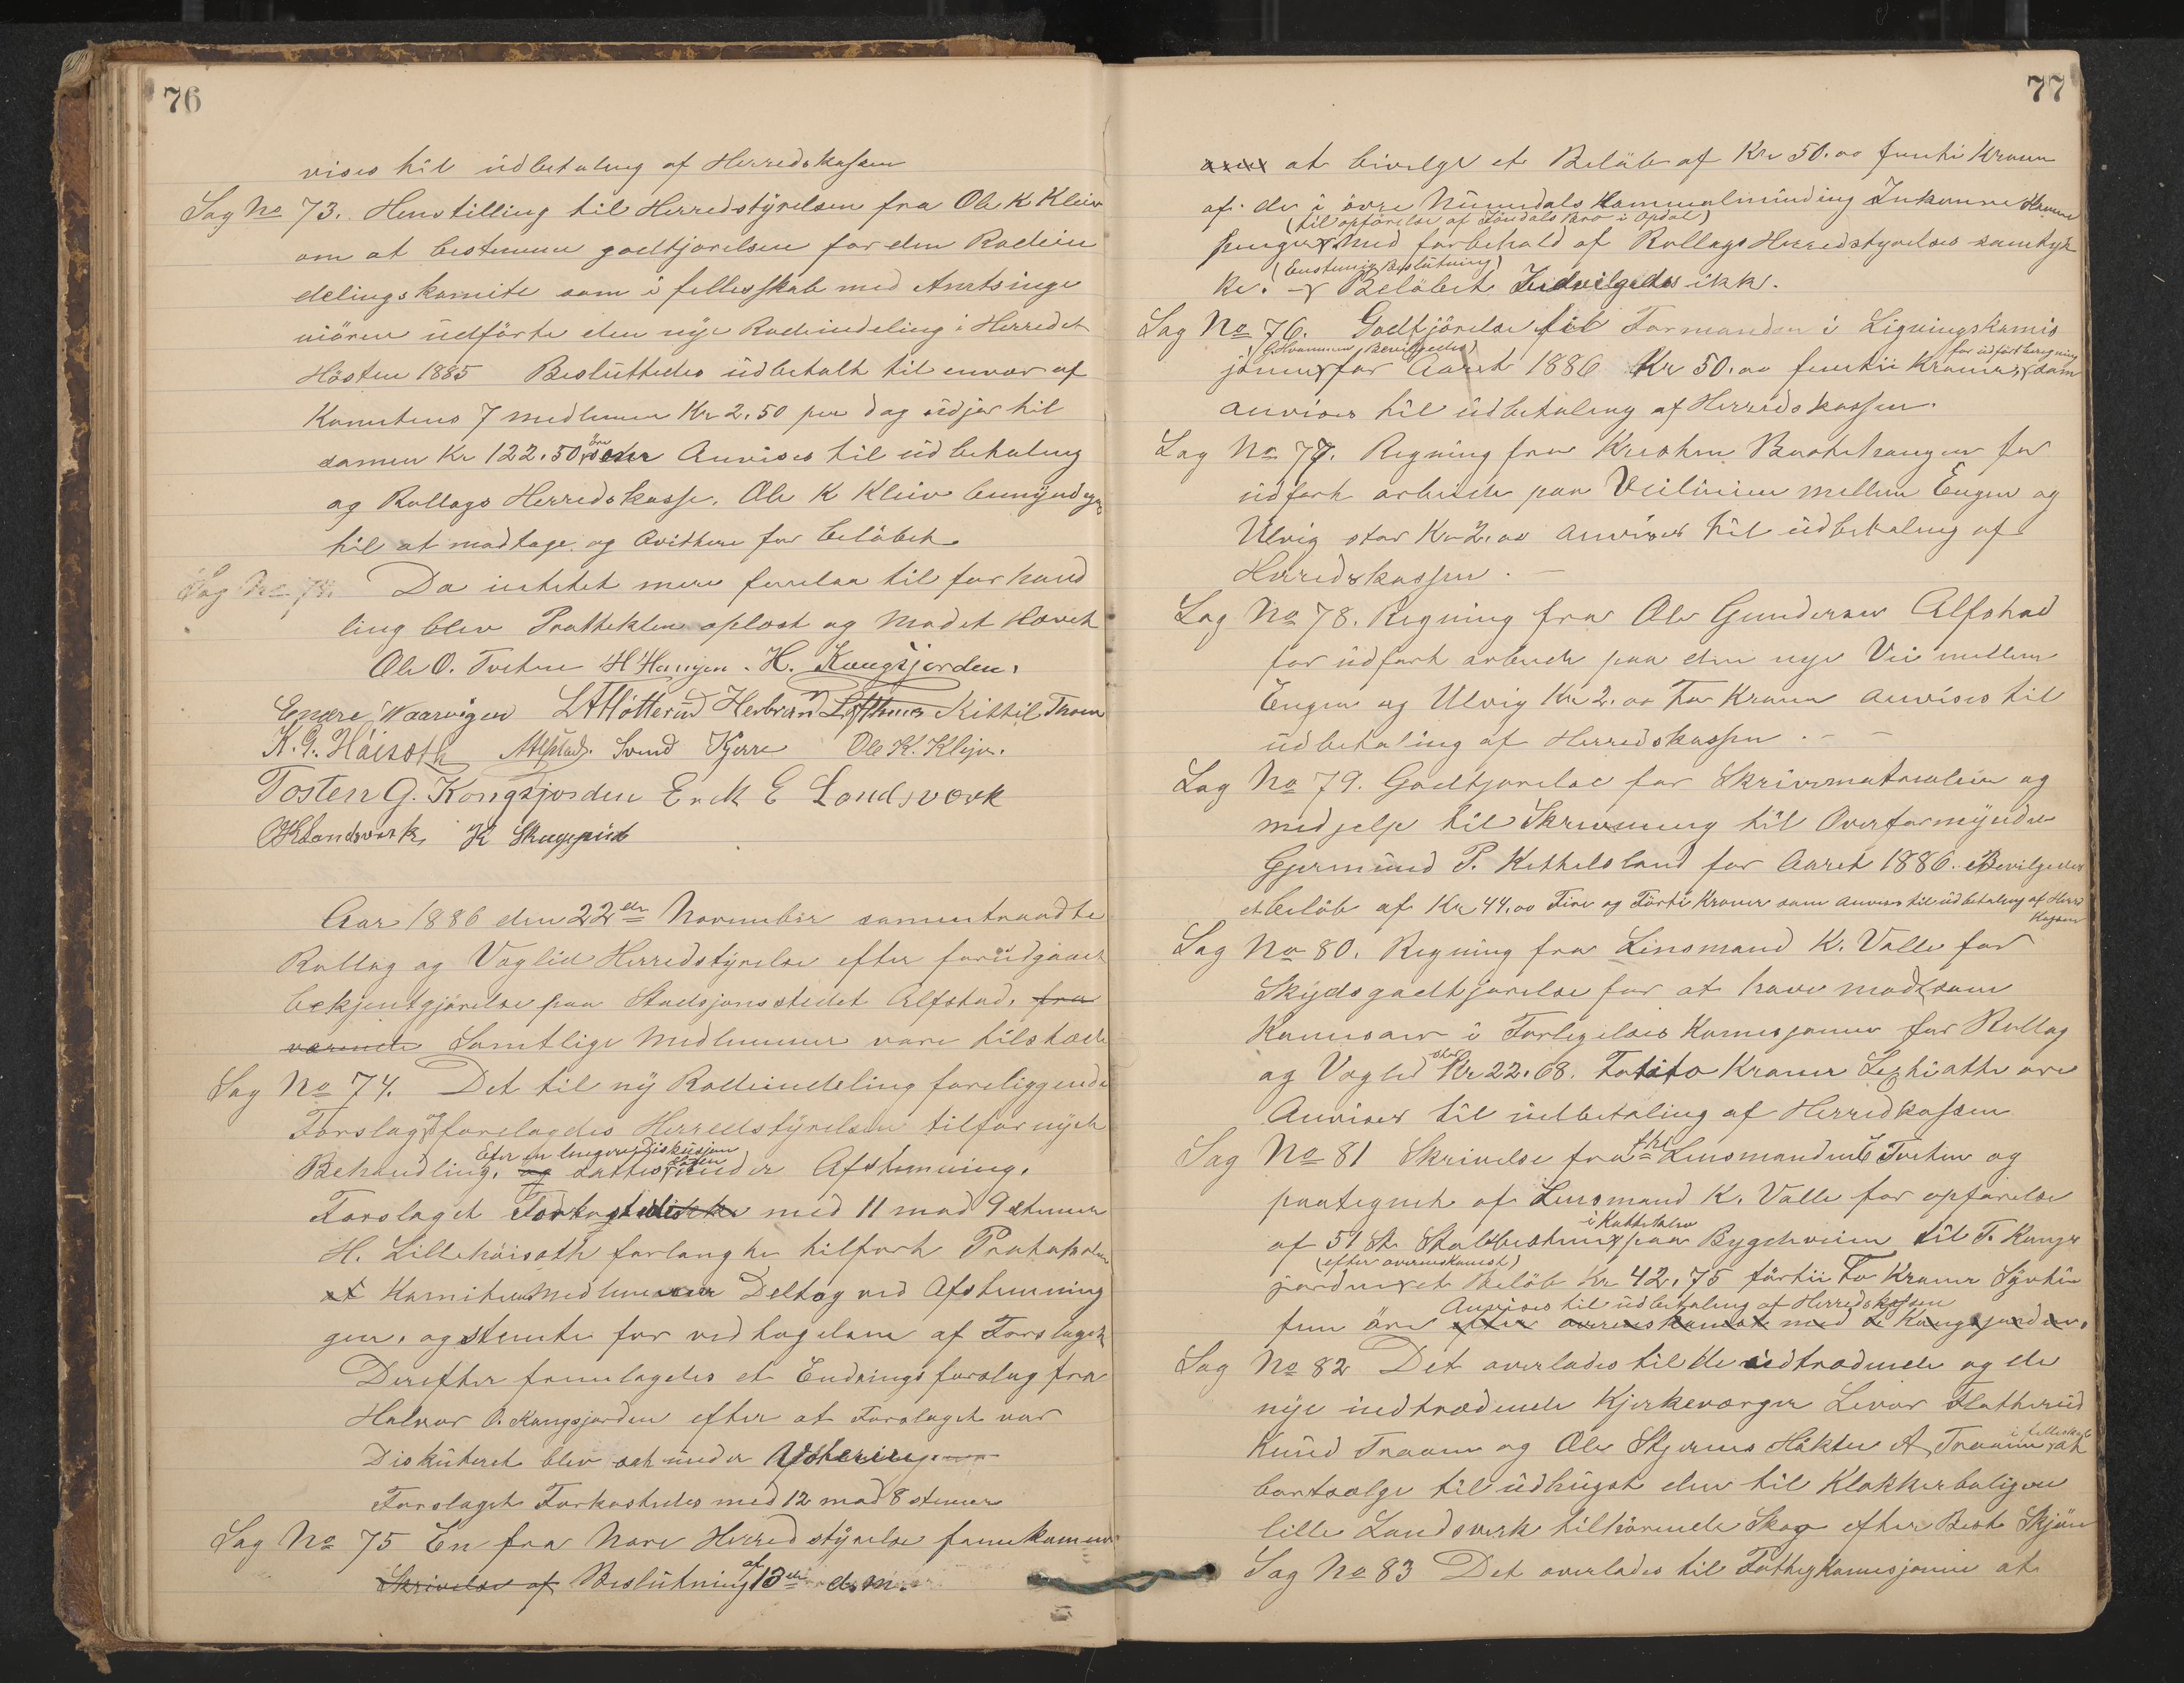 76
vises til üdbetaling af Herredskassen
Sag No 73. Henstilling til Herredstyrelsen fra Ole K Kleiv
om at bestemme godtjørelsen for den Rodein
delingskomite som i fellesskab med Amtsinge
niören üdförte den nye Rodeindeling i Herredet
Hösten 1885 Beslüttedes üdbetalt til enver af
Komiteens 7 medlemer Kr 2.50 per dag üdjör til
samen Kr 122.50 öre Anvises til üdbetaling
ag Rollags Herredskasse. Ole K Kleiv bemyndiges
til at modtage og Qvittere for belöbet.
Sag No 74. Da intetet mere forelaa til forhand
ling blev Prottekllen oplæst og Mødet Hævet
Ole O. Tveten H Haugen. H. Kongsjorden.
Enare Waarvigen Herbrand Lofthus Kittil Traaen
K. G. Höiseth Alfstad. Svend Kjerre Ole K. Klejv.
Tosten G. Kongsjorden Erik E Landsverk
OK Landsverk K Skuggerüd
Aar 1886 den 22de November samentraadte
Rollag og Væglid Herredstyrelse efter forüdgaaet
bekjentgjörelse paa Stadsjonsstedet Alfstad. fra
værende Samtlige Medlemmer vare tilstæde
Sag No 74. Det til ny Rodeindeling foreliggende
Forslag og forelagdes Herredstyrelsen til fornyet
Efter en lengere Diskusjon
Behandling. og sattes ünder Afstemning.
Forslaget Forkastedes ikke med 11 mod 9 stemer
H. Lillehöiseth forlangte tilfört Protokolen
at Komiteens Medlemmer Deltog ved Afstemning
gen. og stemte for vedtagelsen af Forslaget
Derefter fremlagdes et Endringsforslag fra
Halvor O. Kongsjorden efter at Forslaget var
Disküteret blev sat ünder Votering
Forslaget Forkastedes med 12 mod 8 stemer
Sag No 75 En fra Nore Herredstyrelse fremkommen
Skrivelse af Beslütning af 13de d.m.
77
at bivilge et Belöb af Kr 50.00 femti Kroner
af de i övre Nümedals Kommunalmünding Inkomne Havne
(til opförelse af Jöndals Bro i Opdal)
penger med forbehold af Rollags Herredstyrelses samtyk
(Enstemig Beslütning)
ke. Belöbet Indvilgedes ikke.
Sag No 76. Godtjörelse til Formanden i Ligningskomis
jönen for Aaret 1886 Kr 50.00 femtii Kroner, som
for üdfört beregning
anvises til üdbetaling af Herredskassen.
Sag No 77. Regning fra Kresten Braatehaugen for
üdfört arbeide paa Veilinien mellem Engen og
Ulvig stor Kr 2.00 Anvises til üdbetaling af
Herredskassen.
Sag No 78. Regning fra Ole Gundersen Alfstad
for üdfört arbeide paa den nye Vei mellem
Engen og Ulvig Kr 2.00 To Kroner anvises til
üdbetaling af Herredskassen.
Sag No 79. Godtjörelse for Skrivematrialier og
medjelp til Skrivning til Overformynder
Gjermünd P. Kettelsland for Aaret 1886. Bevilgedes
et belöb af Kr 44.00 Fire og Förti Kroner som anvises til üdbetaling af Herreds
Kassen
Sag No 80. Regning fra Linsmand K. Valle for
Skydsgodtjörelse for at have mødt som
Komisær i Forligelses Komisjonen for Rollag
og Væglid stor Kr 22.68. Totito Kroner Sextiotte öre
Anvises til üdbetaling af Herredskassen
Sag No 81 Skrivelse fra fhv Lensmand E Tveten og
paategnet af Lensmand K. Valle for opförelse
i Kattetalen
af 51 St. Stabbestener paa Bygdeveien til T. Kongs
(efter overenskomst)
jorden et Belöb Kr 42.75 förtii To Kroner Syvti
Anvises til üdbetaling af Herredskassen
fem öre efter overenskomst med T Kongsjorden.
Sag No 82 Det overlades til de üdtrædende og de
nye indtrædende Kjerkeværger Levor Flatherüd
i fellesskab
Knüd Traaen og Ole Stjernes Håkten A. Traaen at
bortsælge til üdhügst den til Klokkerboligen
lille Landsverk tilhörende Skog efter Beste Skjön
Sag No 83 Det overlades til Fattigkomisjonen at